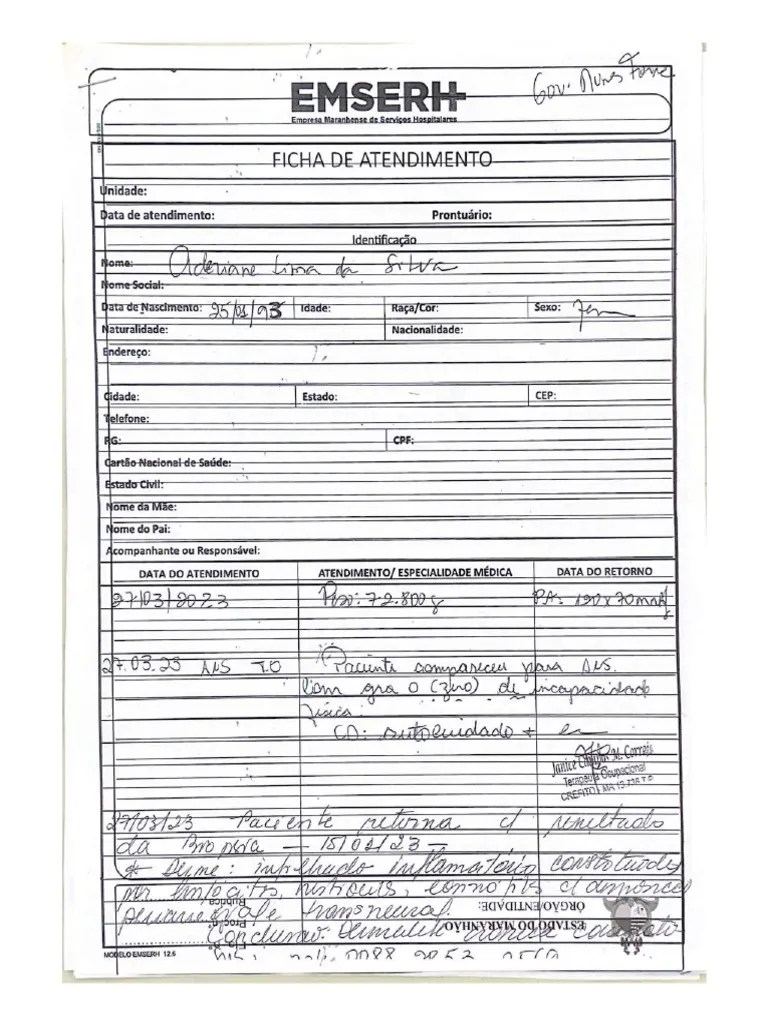 Gov. Nunes Freire
EMSERH
Empresa Maranhense de Serviços Hospitalares
FICHA DE ATENDIMENTO
Unidade:
Data de atendimento: Prontuário:
Identificação
Nome: Aderiane Lima da Silva
Nome Social:
Data de Nascimento: 25/01/93 Idade: Raça/Cor: Sexo: Fem
Naturalidade: Nacionalidade:
Endereço:
Cidade: Estado: CEP:
Telefone:
RG: CPF:
Cartão Nacional de Saúde:
Estado Civil:
Nome da Mãe:
Nome do Pai:
Acompanhante ou Responsável:
DATA DO ATENDIMENTO ATENDIMENTO/ ESPECIALIDADE MÉDICA DATA DO RETORNO
27/03/2023 Peso: 72.800g PA: 120x70mmHg
27.03.23 ANS T.O Paciente compareceu para ANS.
Com grau 0 (zero) de incapacidade
física.
CD: autocuidado +
Janice M. Correia
Terapeuta Ocupacional
CREFITO MA
27/03/23 Paciente retorna c/ resultado
da Biopsia — 15/02/23 —
* Derme: infiltrado inflamatório constituído
por linfócitos, histiócitos,
Rubrica
ORGÃO/ENTIDADE:
transneural.
ESTADO DO MARANHÃO
Conclusão: Dermatite crônica
MODELO EMSERH 12.6
0088